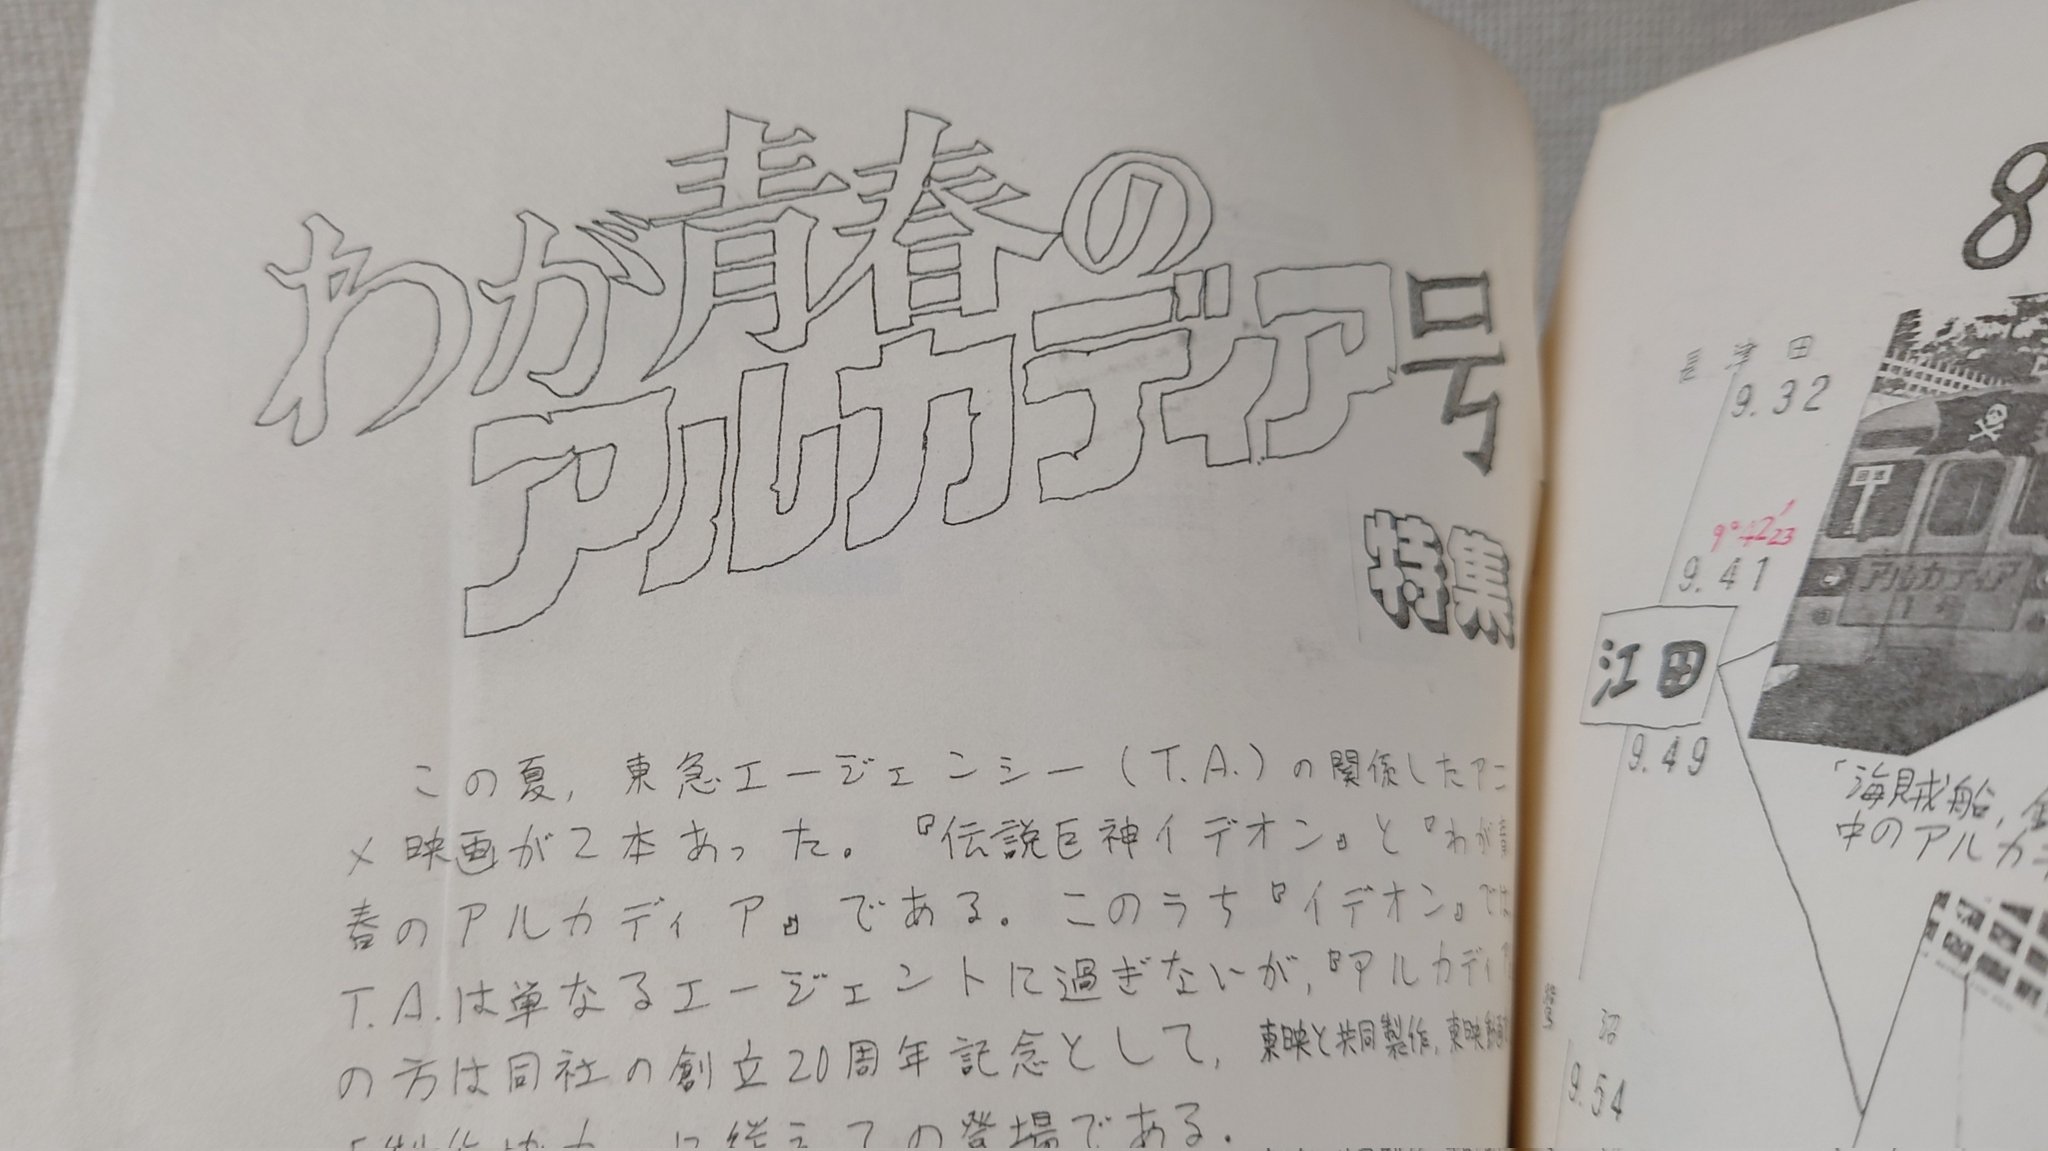 わが青春の
アルカディア号
特集
この夏,東急エージェンシー(T.A.)の関係したアニ
メ映画が2本あった。『伝説巨神イデオン』と『わが青
春のアルカディア』である。このうち『イデオン』では
T.A.は単なるエージェントに過ぎないが,『アルカディア
の方は同社の創立20周年記念として,東映と共同製作,東映
に従えての登場である.
8
長津田
9.32
9°42′23
9.41
江田
9.49
沼
9.54
アルカディア
「海賊船,
中のアルカ